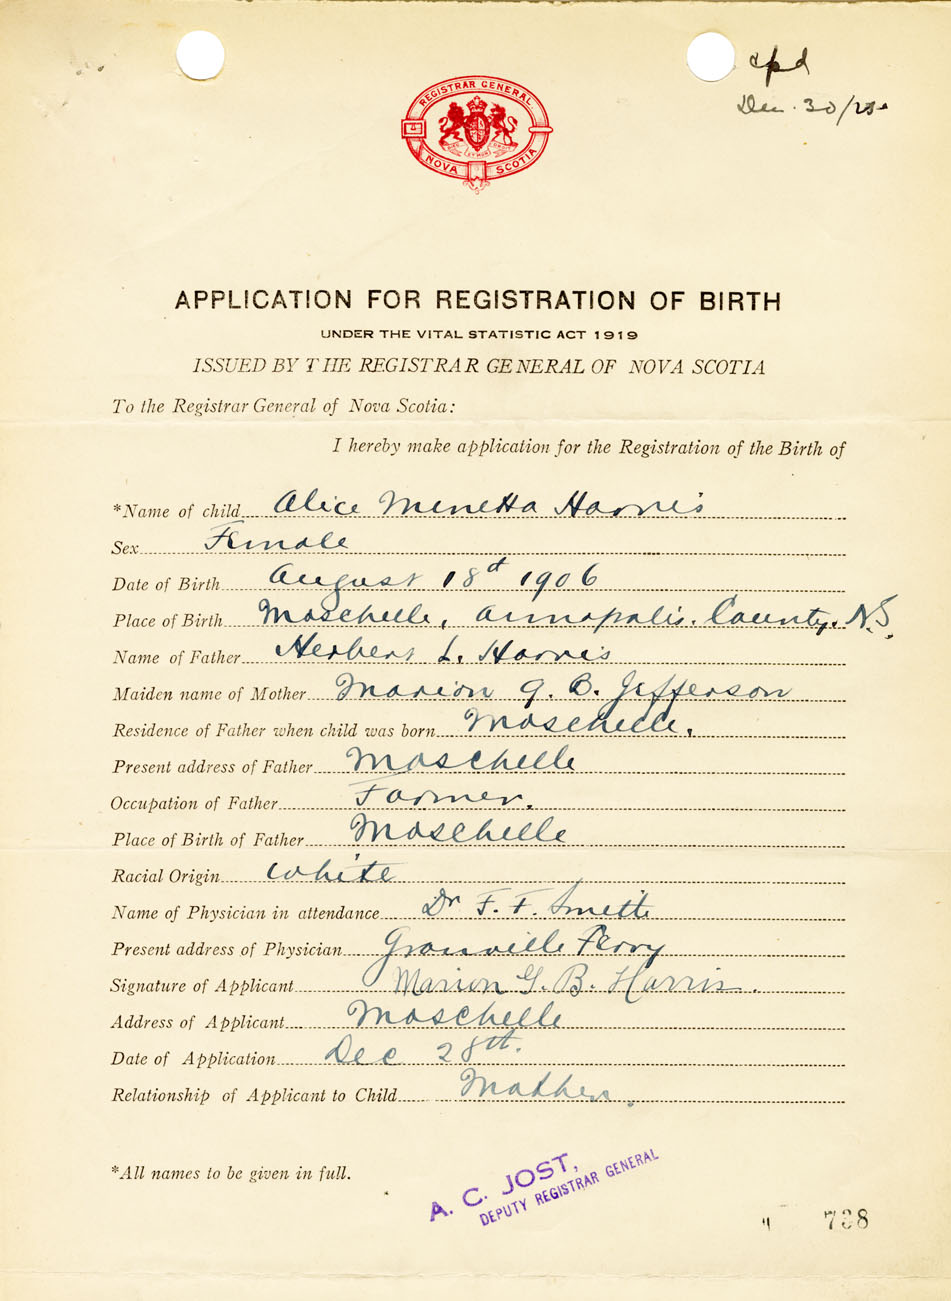 apd
Dec. 30/25
REGISTRAR GENERAL
NOVA SCOTIA
APPLICATION FOR REGISTRATION OF BIRTH
UNDER THE VITAL STATISTIC ACT 1919
ISSUED BY THE REGISTRAR GENERAL OF NOVA SCOTIA
To the Registrar General of Nova Scotia:
I hereby make application for the Registration of the Birth of
*Name of child Alice Minetta Harris
Sex Female
Date of Birth August 18d 1906
Place of Birth Moschelle, Annapolis. County. N.S.
Name of Father Herbert L. Harris
Maiden name of Mother Marion G. B. Jefferson
Residence of Father when child was born Moschelle.
Present address of Father Moschelle
Occupation of Father Farmer.
Place of Birth of Father Moschelle
Racial Origin White
Name of Physician in attendance Dr F. F. Smith
Present address of Physician Granville Ferry
Signature of Applicant Marion G. B. Harris.
Address of Applicant Moschelle
Date of Application Dec 28th.
Relationship of Applicant to Child Mother.
*All names to be given in full.
A. C. JOST,
DEPUTY REGISTRAR GENERAL
738